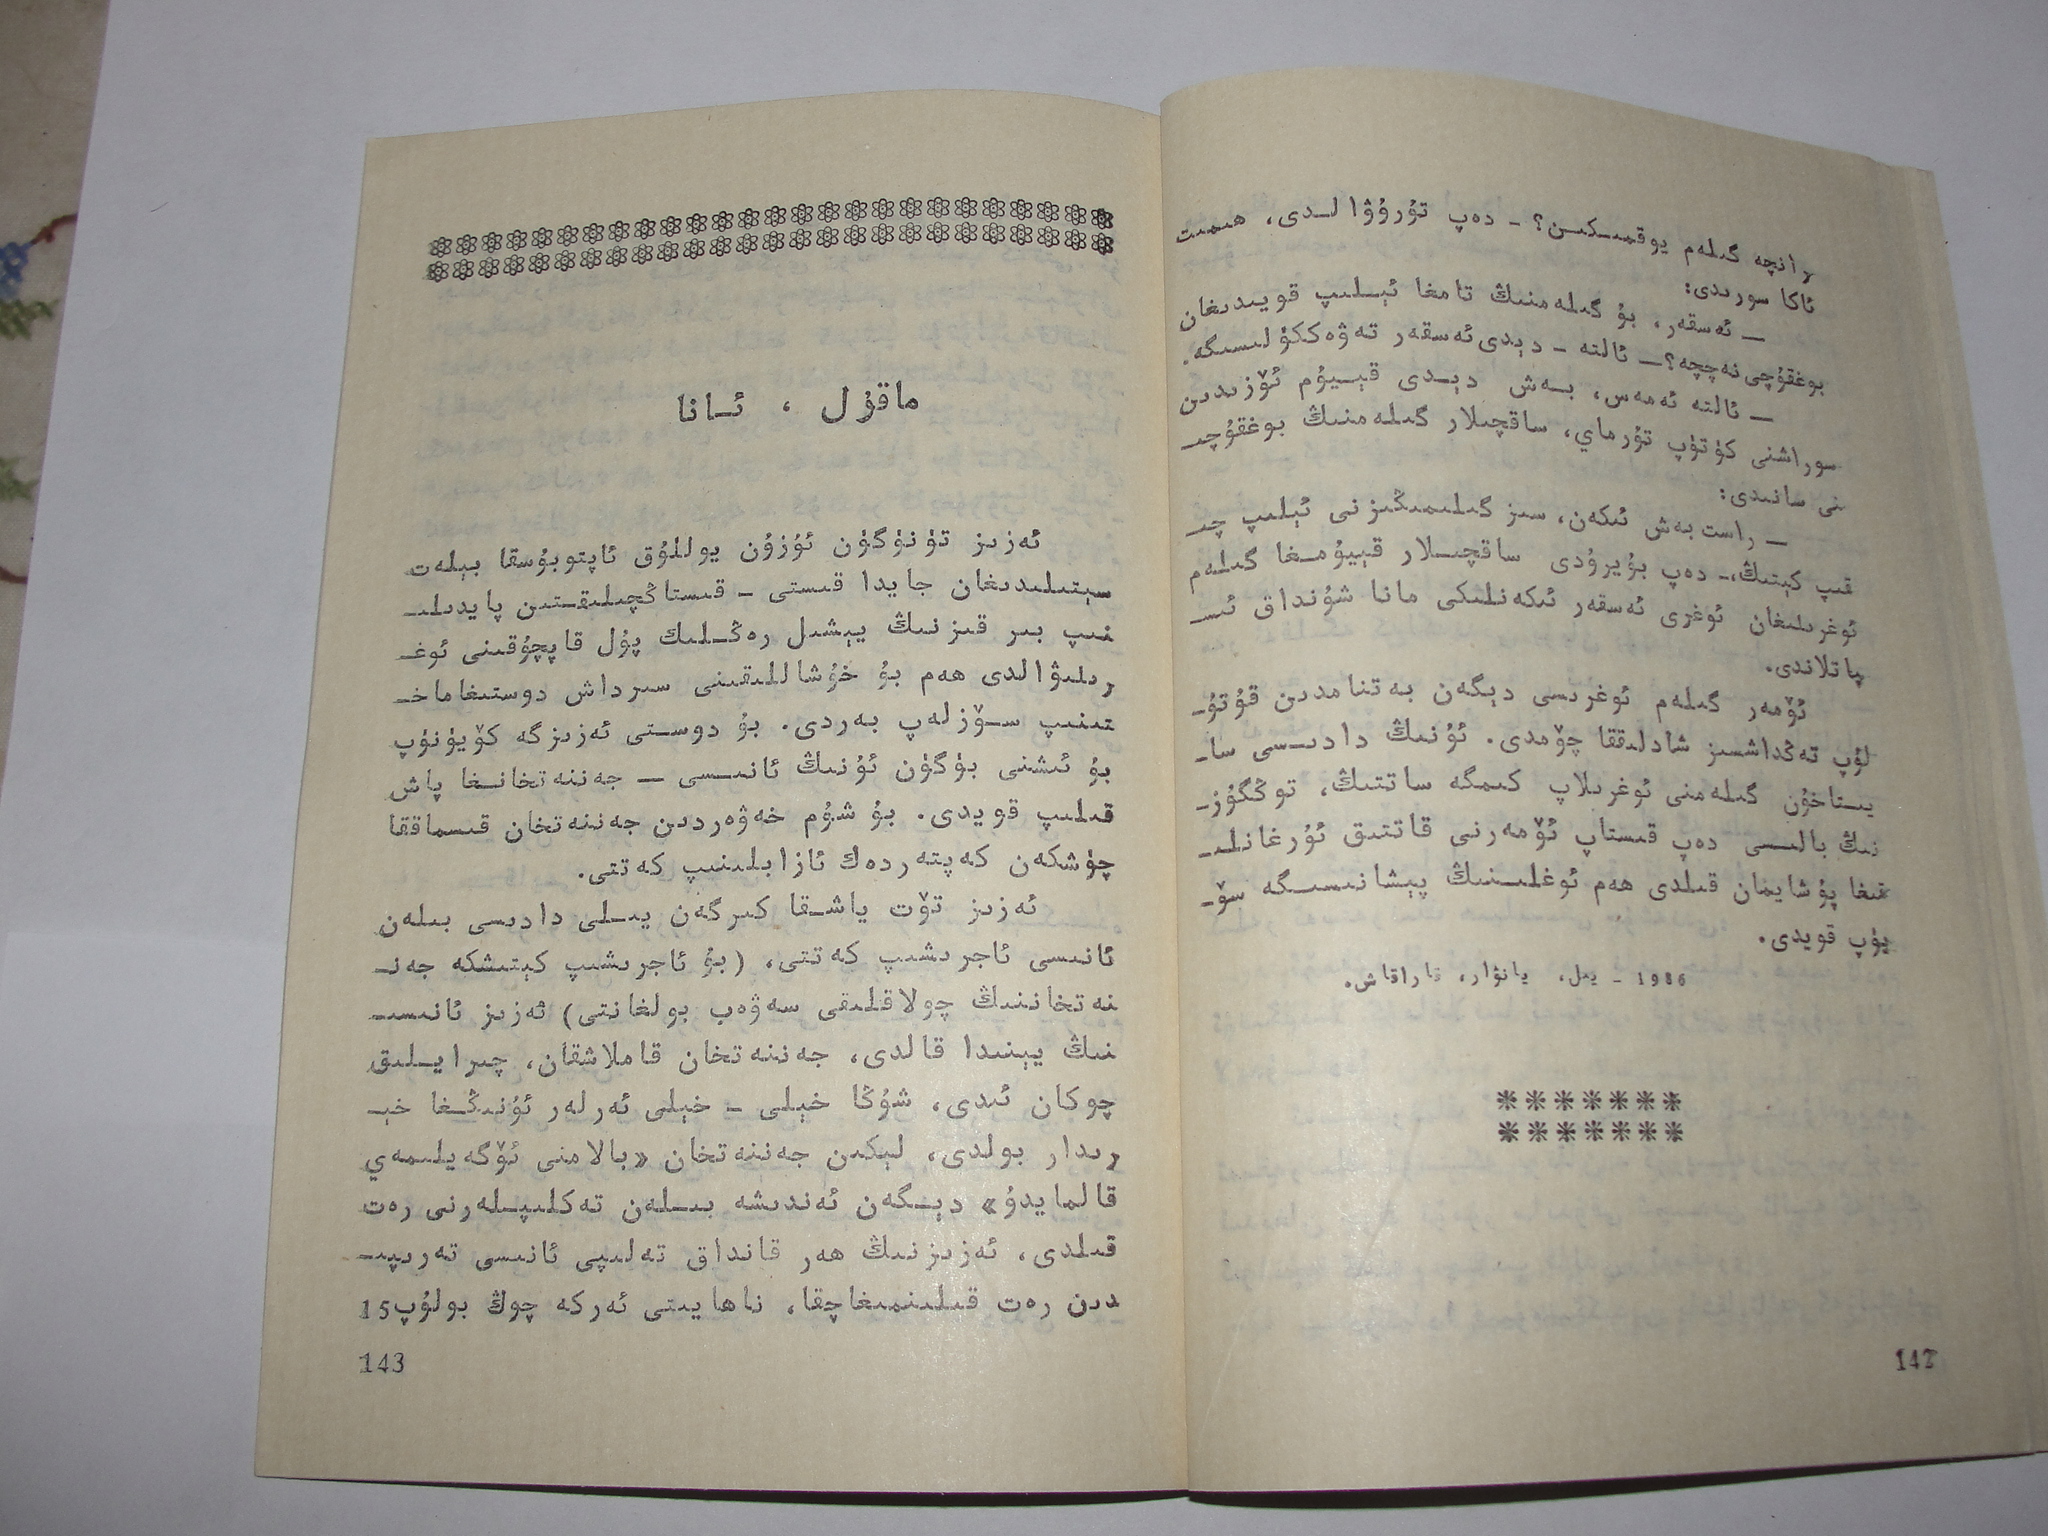 رانچە گىلەم يوقمىكىن؟ - دەپ تۇرۇۋالدى، ھىمىت
ئاكا سورىدى:
— ئەسقەر، بۇ گىلەمنىڭ تامغا ئېلىپ قويىدىغان
بوغقۇچى نەچچە؟ — ئالتە - دېدى ئەسقەر تەۋەككۈلىسىگە.
— ئالتە ئەمەس، بەش دېدى قېيۇم ئۆزىدىن
سوراشنى كۈتۈپ تۇرماي، ساقچىلار گىلەمنىڭ بوغقۇچى-
نى سانىدى:
— راست بەش ئىكەن، سىز گىلىمىڭىزنى ئېلىپ چى-
قىپ كېتىڭ،- دەپ بۇيرۇدى ساقچىلار قېيۇمغا گىلەم
ئوغرىلىغان ئوغرى ئەسقەر ئىكەنلىكى مانا شۇنداق ئىس-
پاتلاندى.
ئۆمەر گىلەم ئوغرىسى دېگەن بەتنامدىن قۇتۇ-
لۇپ تەڭداشسىز شادلىققا چۆمدى. ئۇنىڭ دادىسى سا-
يىتاخۇن گىلەمنى ئوغرىلاپ كىمگە ساتتىڭ، توڭگۇز-
نىڭ بالىسى دەپ قىستاپ ئۆمەرنى قاتتىق ئۇرغانلى-
قىغا پۇشايمان قىلدى ھەم ئوغلىنىڭ پېشانىسىگە سۆ-
يۈپ قويدى.
1986 - يىل، يانۋار، قاراقاش.
142
ماقۇل ، ئانا
ئەزىز تۈنۈگۈن ئۇزۇن يوللۇق ئاپتوبۇسقا بېلەت
سېتىلىدىغان جايدا قىستى - قىستاڭچىلىقتىن پايدىلى-
نىپ بىر قىزنىڭ يېشىل رەڭلىك پۇل قاپچۇقىنى ئوغ-
رىلىۋالدى ھەم بۇ خۇشاللىقىنى سىرداش دوستىغاماخ-
تىنىپ سۆزلەپ بەردى. بۇ دوستى ئەزىزگە كۆيۈنۈپ
بۇ ئىشنى بۈگۈن ئۇنىڭ ئانىسى — جەننەتخانغا پاش
قىلىپ قويدى. بۇ شۇم خەۋەردىن جەننەتخان قىسماققا
چۈشكەن كەپتەردەك ئازابلىنىپ كەتتى.
ئەزىز تۆت ياشقا كىرگەن يىلى دادىسى بىلەن
ئانىسى ئاجرىشىپ كەتتى، (بۇ ئاجرىشىپ كېتىشكە جەن-
نەتخاننىڭ چولاقلىقى سەۋەب بولغانتى) ئەزىز ئانىسى-
نىڭ يېنىدا قالدى، جەننەتخان قاملاشقان، چىرايلىق
چوكان ئىدى، شۇڭا خېلى - خېلى ئەرلەر ئۇنىڭغا خې-
رىدار بولدى، لېكىن جەننەتخان «بالامنى ئۆگەيلىمەي
قالمايدۇ» دېگەن ئەندىشە بىلەن تەكلىپلەرنى رەت
قىلدى، ئەزىزنىڭ ھەر قانداق تەلىپى ئانىسى تەرىپى-
دىن رەت قىلىنمىغاچقا، ناھايىتى ئەركە چوڭ بولۇپ15
143